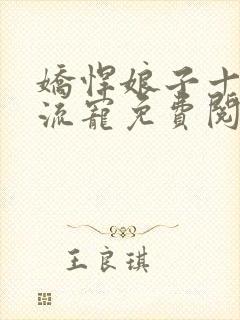 嬌悍娘子十
流寵免費閱
王良琪